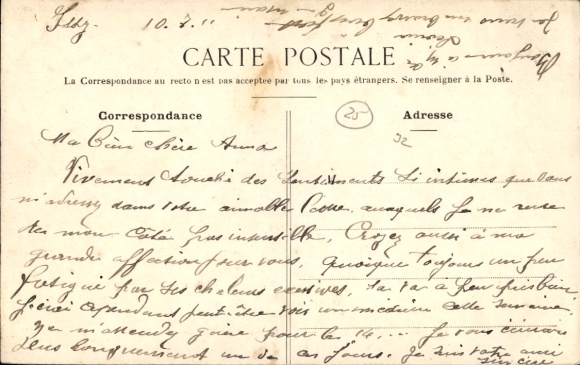 10.7.11
CARTE POSTALE
La Correspondance au recto n'est pas acceptée par tous les pays étrangers. Se renseigner à la Poste.
25
Correspondance
Adresse
32
Ma bien chère Anna
Vivement touché des sentiments si intimes que vous
m'adressez dans votre aimable auxquels je ne reste
de mon côté pas insensible. Croyez aussi à ma
grande affection pour vous. Quoique toujours un peu
fatigué par ces chaleurs excessives, ça va à peu près bien
j'irai cependant peut-être voir un médecin cette semaine.
ne m'attendez guère pour le 14... Je vous écrirai
plus longuement un de ces jours. Je suis votre ami
sincère